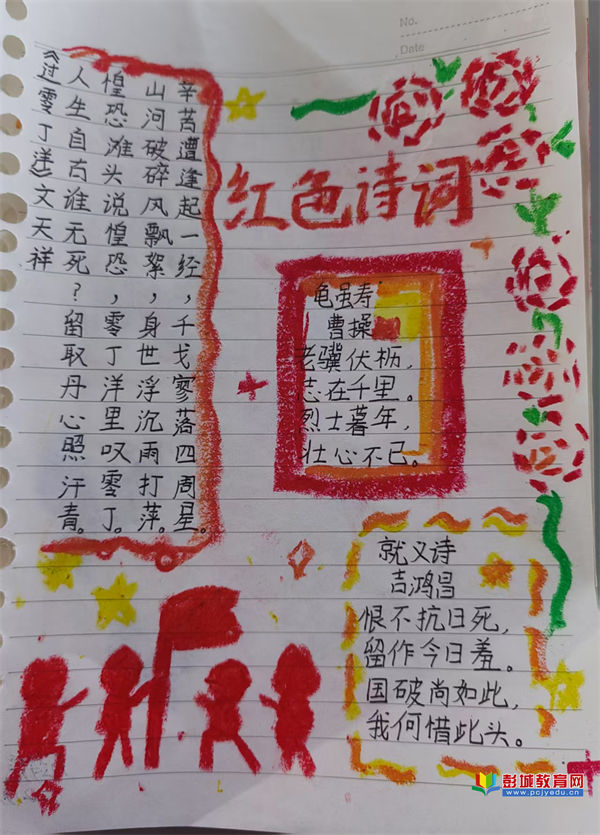 No.
Date
红色诗词
辛苦遭逢起一经，千戈寥落四周星。
山河破碎风飘絮，身世浮沉雨打萍。
惶恐滩头说惶恐，零丁洋里叹零丁。
人生自古谁无死？留取丹心照汗青。
《过零丁洋》文天祥
龟虽寿
曹操
老骥伏枥，
志在千里。
烈士暮年，
壮心不已。
就义诗
吉鸿昌
恨不抗日死，
留作今日羞。
国破尚如此，
我何惜此头。
彭城教育网
www.pcjyedu.cn